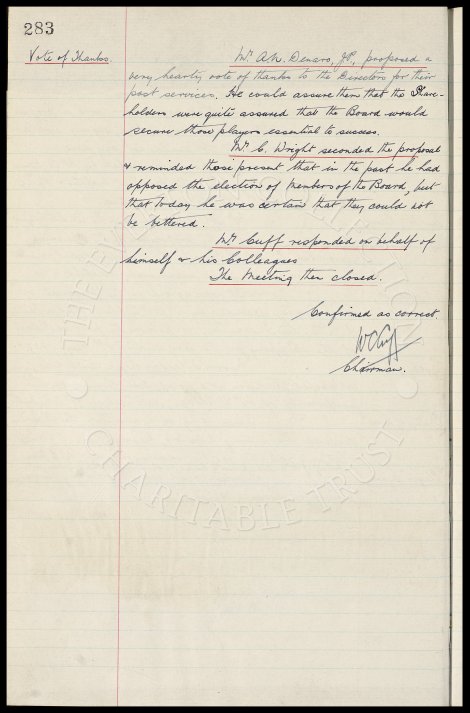 283
Vote of Thanks.
Mr. A.N. Denaro, J.P., proposed a
very hearty vote of thanks to the Directors for their
past services. He could assure them that the Share-
holders were quite assured that the Board would
secure those players essential to success.
Mr. C. Wright seconded the proposal
& reminded those present that in the past he had
opposed the election of Members of the Board, but
that today he was certain that they could not
be bettered.
Mr. Cuff responded on behalf of
himself & his Colleagues
The Meeting then closed.
Confirmed as correct.
W C Cuff
Chairman.
THE EVERTON
CHARITABLE TRUST